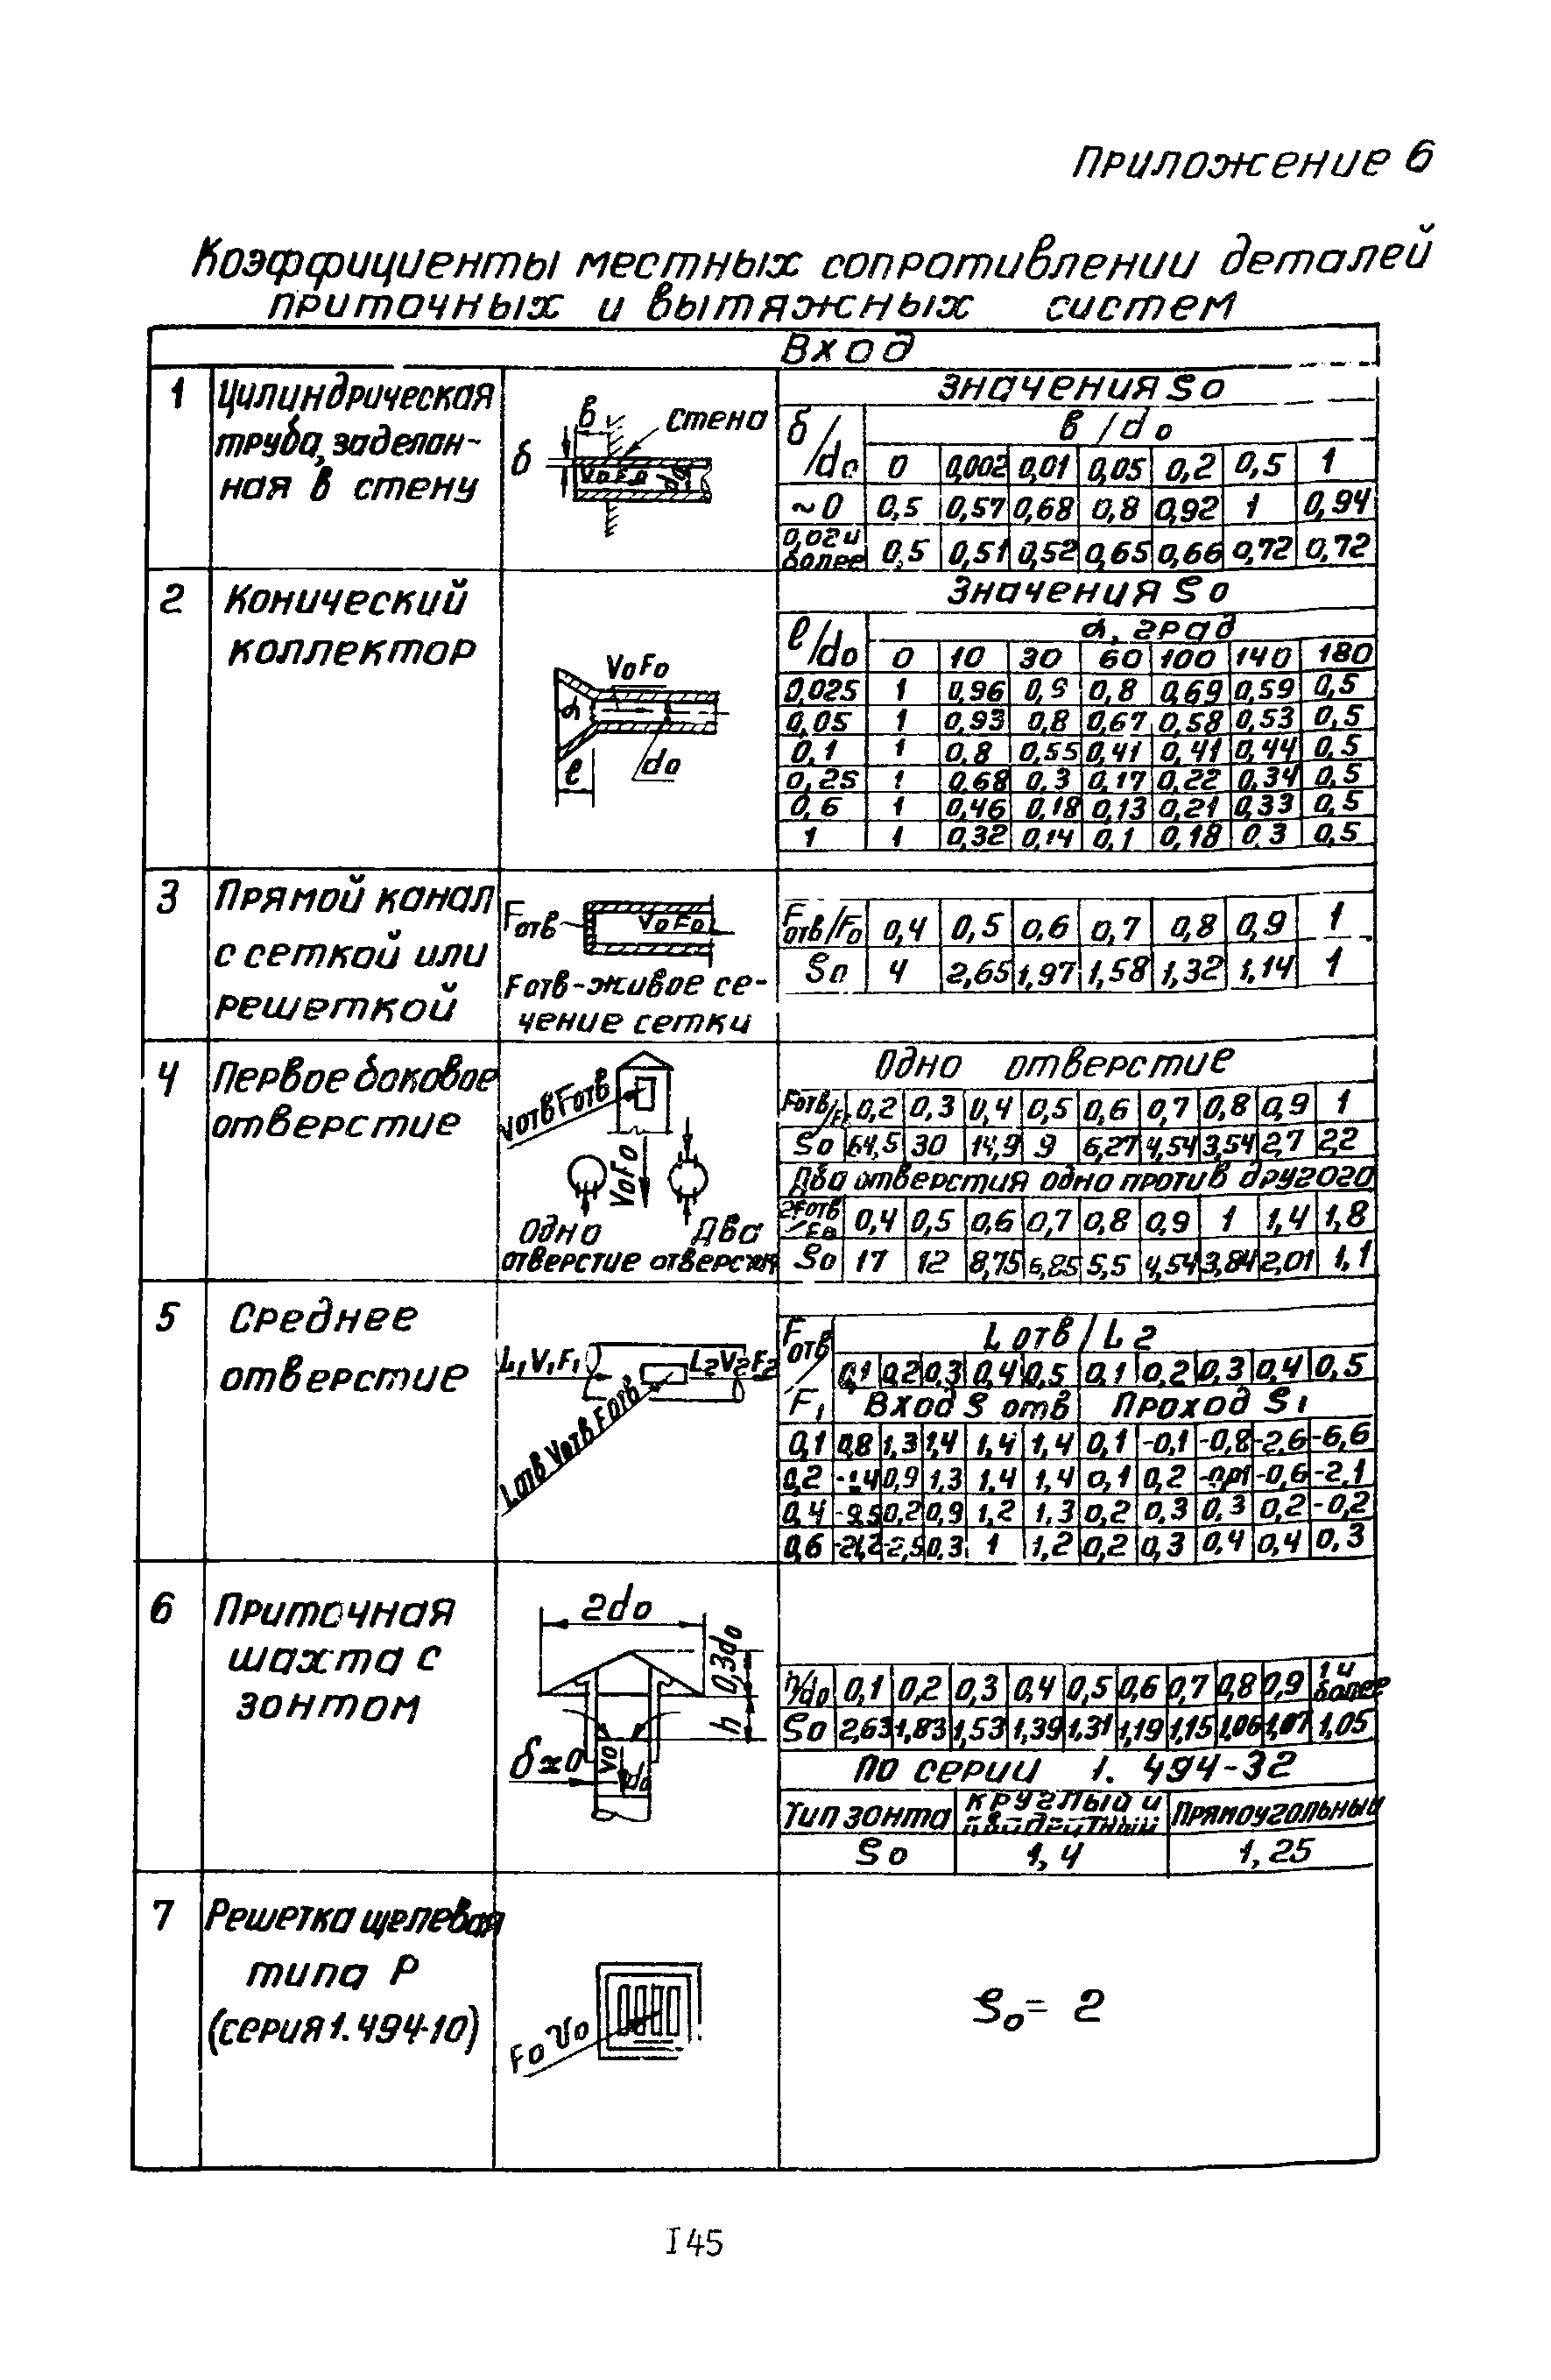 Приложение 6
Коэффициенты местных сопротивлении деталей
приточных и вытяжных систем
Вход
1 Цилиндрическая труба, заделан-
ная в стену
б в Стена
VoFo do
Значения So
б/do в/do
0 0,002 0,01 0,05 0,2 0,5 1
~0 0,5 0,57 0,68 0,8 0,92 1 0,94
0,02 и более 0,5 0,51 0,52 0,65 0,66 0,72 0,72
2 Конический
коллектор
VoFo
α
l do
Значения So
l/do α, град
0 10 30 60 100 140 180
0,025 1 0,96 0,9 0,8 0,69 0,59 0,5
0,05 1 0,93 0,8 0,67 0,58 0,53 0,5
0,1 1 0,8 0,55 0,41 0,41 0,44 0,5
0,25 1 0,68 0,3 0,17 0,22 0,34 0,5
0,6 1 0,46 0,18 0,13 0,21 0,33 0,5
1 1 0,32 0,14 0,1 0,18 0,3 0,5
3 Прямой канал
с сеткой или
решеткой
Fотв VoFo
Fотв-живое се-
чение сетки
Fотв/Fo 0,4 0,5 0,6 0,7 0,8 0,9 1
So 4 2,65 1,97 1,58 1,32 1,14 1
4 Первое боковое
отверстие
VотвFотв
VoFo
Одно Два
отверстие отверстия
Одно отверстие
Fотв/Fo 0,2 0,3 0,4 0,5 0,6 0,7 0,8 0,9 1
So 64,5 30 14,9 9 6,27 4,54 3,54 2,7 2,2
Два отверстия одно против другого
2Fотв/Fo 0,4 0,5 0,6 0,7 0,8 0,9 1 1,4 1,8
So 17 12 8,75 6,85 5,5 4,54 3,84 2,01 1,1
5 Среднее
отверстие
L1V1F1 L2V2F2
Lотв Vотв Fотв
Fотв/F1 Lотв/L2
0,1 0,2 0,3 0,4 0,5 0,1 0,2 0,3 0,4 0,5
Вход S отв Проход S1
0,1 0,8 1,3 1,4 1,4 1,4 0,1 -0,1 -0,8 -2,6 -6,6
0,2 -1,4 0,9 1,3 1,4 1,4 0,1 0,2 -0,01 -0,6 -2,1
0,4 -9,5 0,2 0,9 1,2 1,3 0,2 0,3 0,3 0,2 -0,2
0,6 -21,2 -2,5 0,3 1 1,2 0,2 0,3 0,4 0,4 0,3
6 Приточная
шахта с
зонтом
2do
0,3do
h
б≈0 Vo do
h/do 0,1 0,2 0,3 0,4 0,5 0,6 0,7 0,8 0,9 1 и более
So 2,63 1,83 1,53 1,39 1,31 1,19 1,15 1,06 1,07 1,05
По серии 1. 494-32
Тип зонта круглый и квадратный Прямоугольный
So 1,4 1,25
7 Решетка щелевая
типа Р
(серия 1.494-10)
Fo Vo
So = 2
145